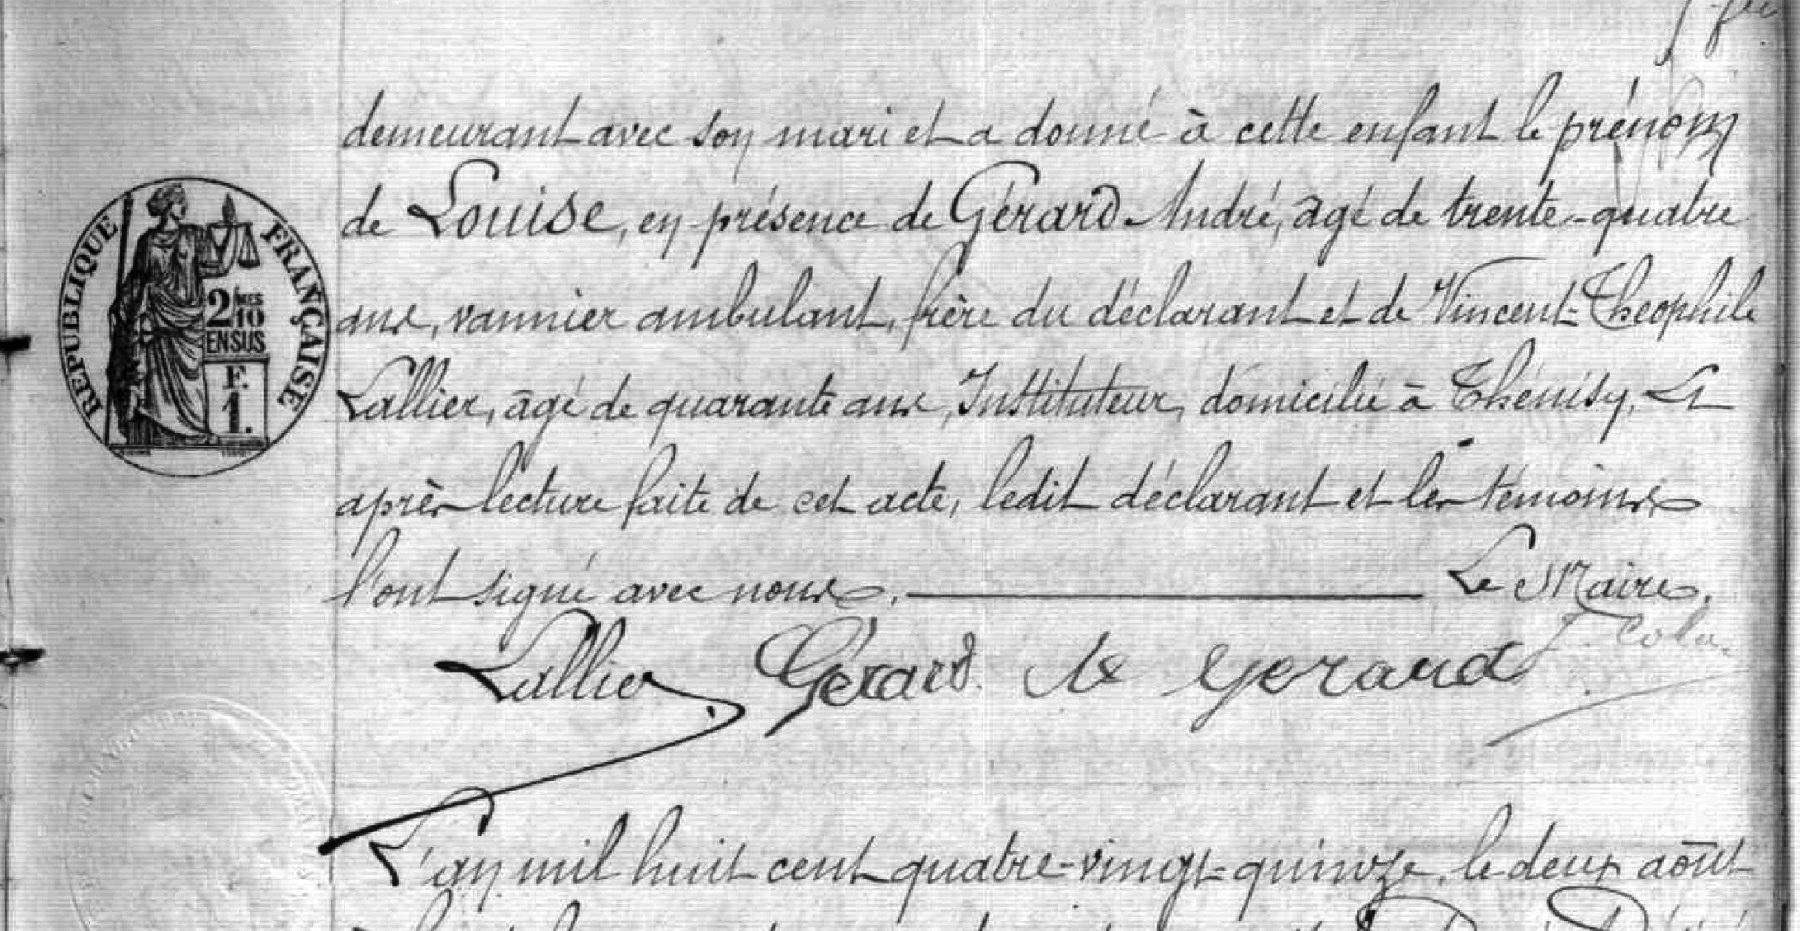 demeurant avec son mari et a donné à cette enfant le prénom
de Louise, en présence de Gérard André, âgé de trente-quatre
ans, vannier ambulant, frère du déclarant et de Vincent-Théophile
Lallier, âgé de quarante ans, Instituteur, domicilié à Thénisy. Et
après lecture faite de cet acte, ledit déclarant et les témoins
l'ont signé avec nous. Le Maire,
Lallier Gérard Gerard
L'an mil huit cent quatre-vingt-quinze, le deux août
RÉPUBLIQUE FRANÇAISE
2/10
EN SUS
F.
1.